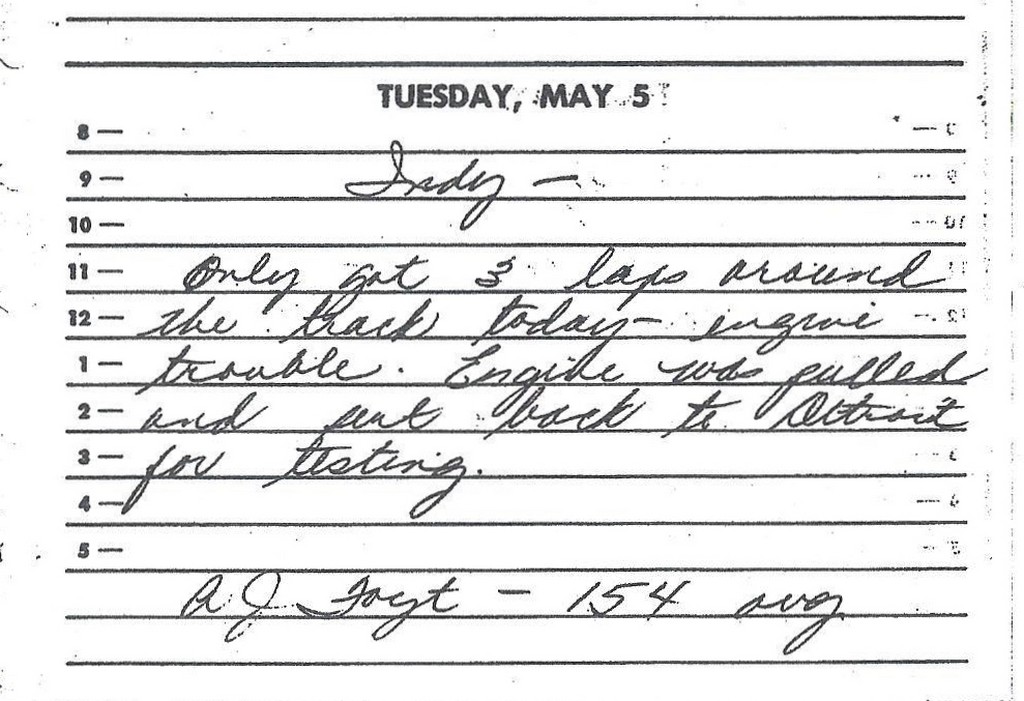 TUESDAY, MAY 5
8 —
9 — Indy —
10 —
11 — Only got 3 laps around
12 — the track today — engine
1 — trouble. Engine was pulled
2 — and sent back to Detroit
3 — for testing.
4 —
5 —
A J Foyt — 154 avg